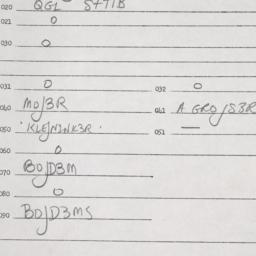 020 QG1 S+71B
021 O
030 O
031 O 032 O
040 MOJ3R 041 A GROJS3R
050 'KLEJNJNK3R' 051 —
060 O
070 BOJD3M
080 O
090 BOJD3MS